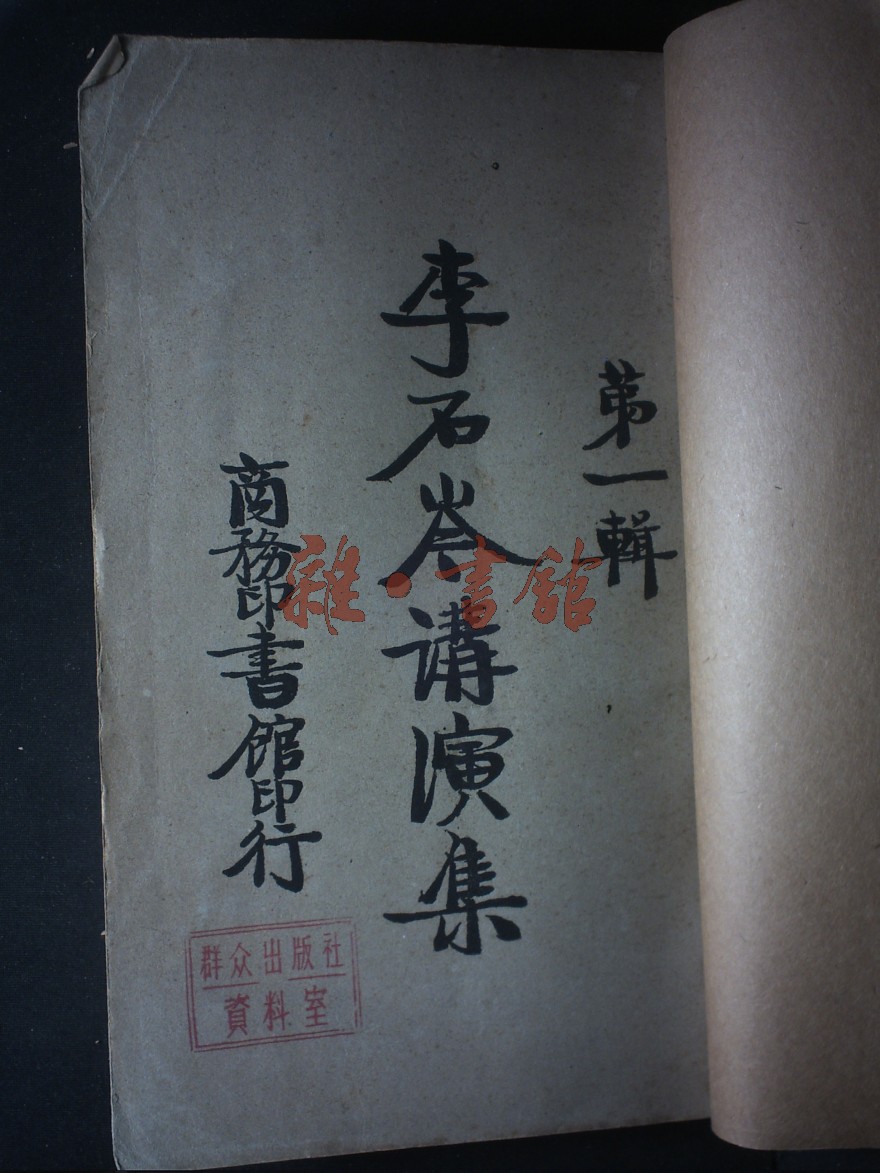 第一輯
李石岑講演集
商務印書館印行
雜·書館
群众出版社
資料室